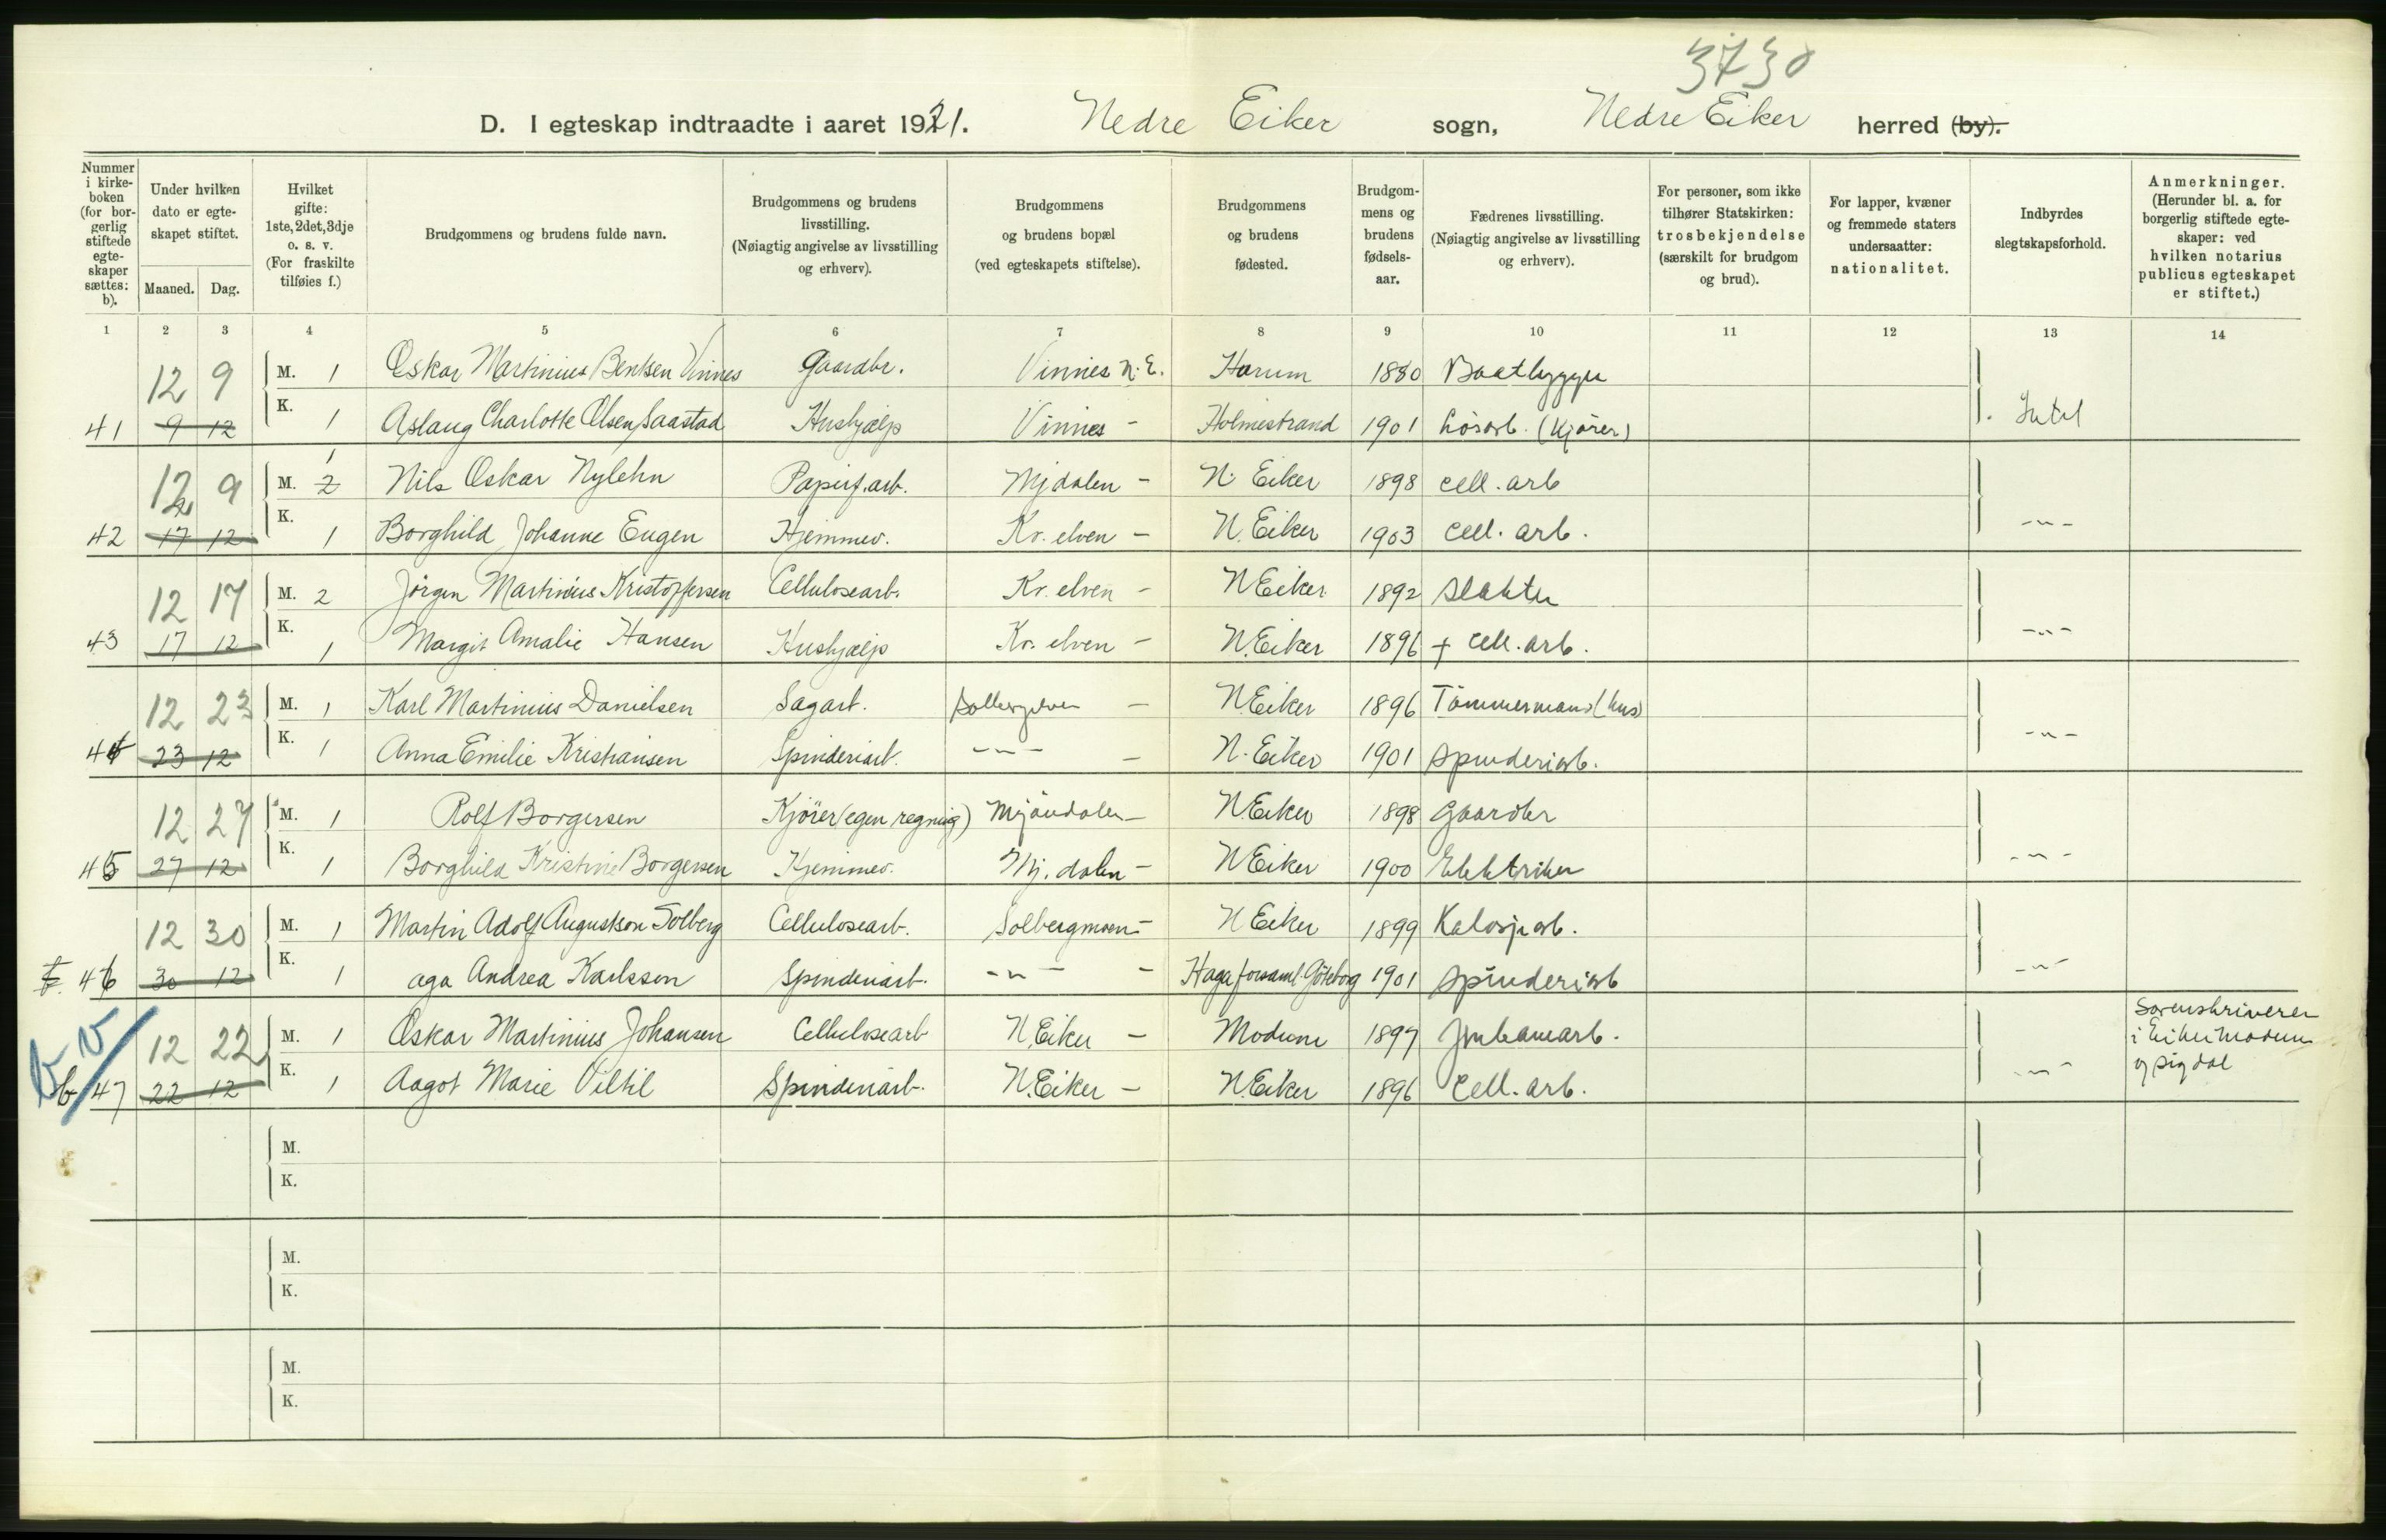 3730
D. I egteskap indtraadte i aaret 1921. Nedre Eiker sogn, Nedre Eiker herred (by).
Nummer i kirke-boken (for bor-gerlig stiftede egte-skaper sættes: b). Under hvilken dato er egte-skapet stiftet. Maaned. Dag. Hvilket gifte: 1ste, 2det, 3dje o. s. v. (For fraskilte tilføies f.) Brudgommens og brudens fulde navn. Brudgommens og brudens livsstilling. (Nøiagtig angivelse av livsstilling og erhverv). Brudgommens og brudens bopæl (ved egteskapets stiftelse). Brudgommens og brudens fødested. Brudgom-mens og brudens fødsels-aar. Fædrenes livsstilling. (Nøiagtig angivelse av livsstilling og erhverv). For personer, som ikke tilhører Statskirken: trosbekjendelse (særskilt for brudgom og brud). For lapper, kvæner og fremmede staters undersaatter: nationalitet. Indbyrdes slegtskapsforhold. Anmerkninger. (Herunder bl. a. for borgerlig stiftede egte-skaper: ved hvilken notarius publicus egteskapet er stiftet.)
1 2 3 4 5 6 7 8 9 10 11 12 13 14
12 9 M. 1 Oskar Martinius Bentsen Vinnes Gaardbr. Vinnes N.E. Horum 1880 Baatbygger
41 9 12 K. 1 Aslaug Charlotte Olsen Saastad Hushjælp Vinnes - Holmestrand 1901 Løsarb. (Kjører) Intet
12 9 M. 2 1 Nils Oskar Nylehn Papirf.arb. Mjdalen - N. Eiker 1898 cell. arb
42 17 12 K. 1 Borghild Johanne Eugen Hjemmev. Kr. elven - N. Eiker 1903 cell. arb. -"-
12 17 M. 2 Jørgen Martinius Kristoffersen Cellulosearb. Kr. elven - N Eiker 1892 Slakter
43 17 12 K. 1 Margit Amalie Hansen Hushjælp Kr. elven - N. Eiker 1896 + cell. arb. -"-
12 23 M. 1 Karl Martinius Danielsen Sagarb. - N. Eiker 1896 Tømmermand (hus)
44 23 12 K. 1 Anna Emilie Kristiansen Spinderiarb. -"- - N. Eiker 1901 Spinderiarb. -"-
12 27 M. 1 Rolf Borgersen Kjører (egen regning) Mjøndalen - N. Eiker 1898 Gaardbr
45 27 12 K. 1 Borghild Kristine Borgersen Hjemmev. Mj. dalen - N Eiker 1900 Elektriker -"-
12 30 M. 1 Martin Adolf Augustson Solberg Cellulosearb. Solbergmoen - N Eiker 1899 Kalosjarb.
46 30 12 K. 1 aga Andrea Karlsson Spinderiarb. -"- - Haga forsaml. Göteborg 1901 Spinderiarb -"-
12 22 M. 1 Oskar Martinius Johansen Cellulosearb N. Eiker - Modum 1897 Jernbanearb. Sorenskriveren
b 47 22 12 K. 1 Aagot Marie Viltil Spinderiarb. N. Eiker - N. Eiker 1896 Cell. arb. -"- i Eiker Modum og Sigdal
M.
K.
M.
K.
M.
K.